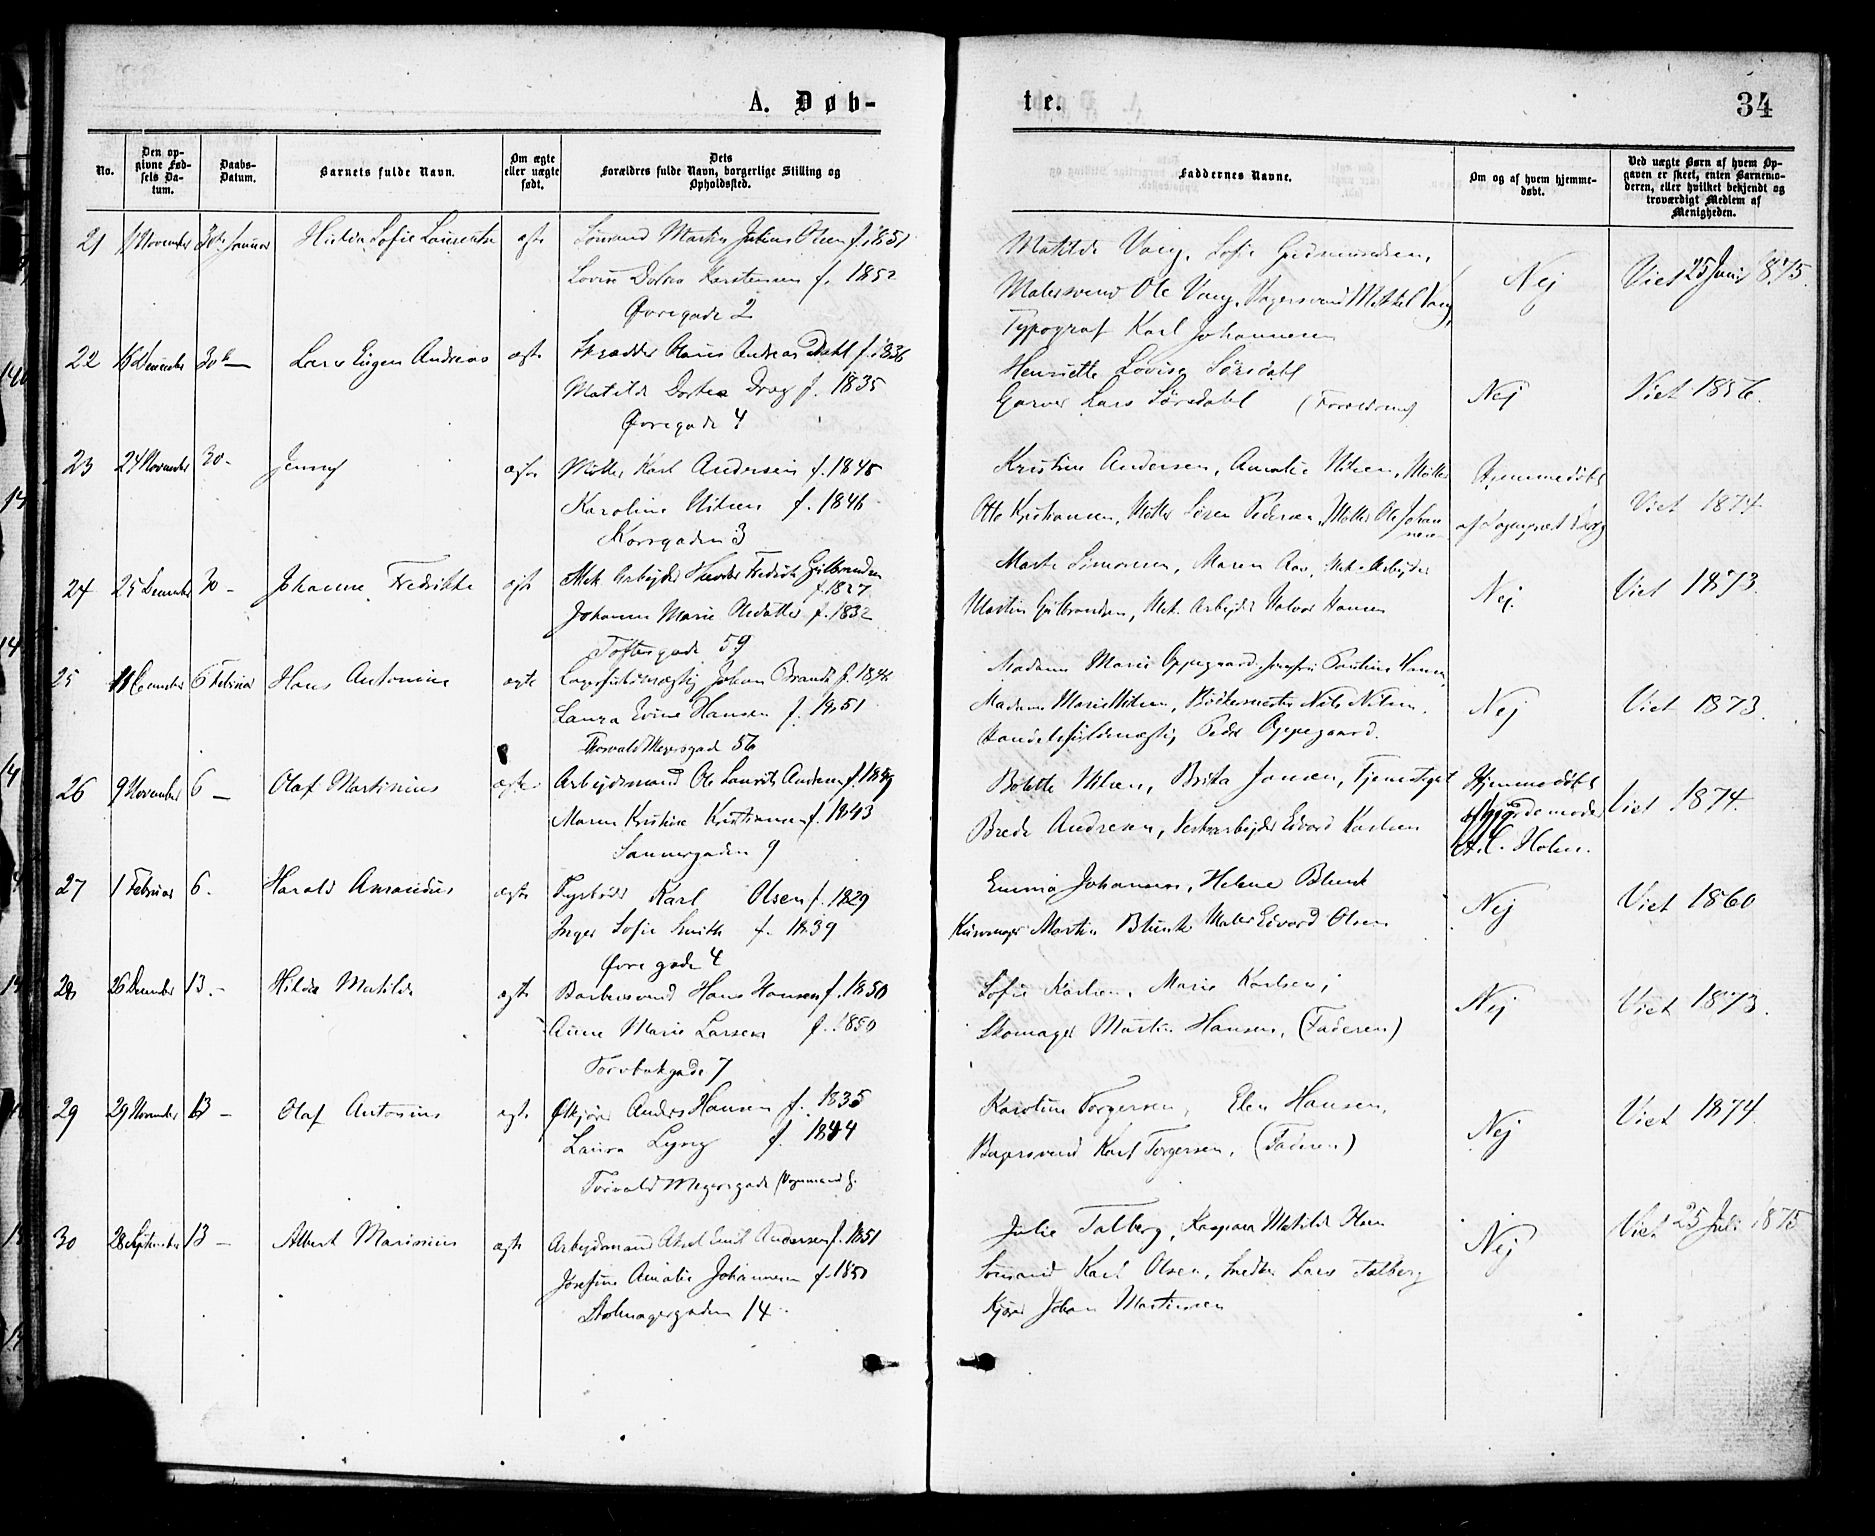 A. Døb-
te.
34
No.
Den op-
givne Fød-
sels Da-
tum.
Daabs-
Datum.
Barnets fulde Navn.
Om ægte
eller uægte
født.
Dets
Forældres fulde Navn, borgerlige Stilling og
Opholdsted.
Faddernes Navne.
Om og af hvem hjemme-
døbt.
Ved uægte Børn af hvem Op-
gaven er skeet, enten Barnemo-
deren, eller hvilket bekjendt og
troværdigt Medlem af
Menigheden.
21 November 30te Januar Hilda Sofie ægte Sømand Martin Julius Olsen f. 1851
Lovise Dortea f. 1852
Øvregade 2
Matilde Vang, Sofie Gudmundsen,
Malersvend Ole Vang, Mikkel Vang,
Typograf Karl Johannesen
Nej
Viet 25 Juni 1875.
22 December 30te Lars Eugen Andreas ægte Skrædder Andreas Dahl f. 1836
Matilde Dortea f. 1835
Øvregade 4
Henriette Lovise Sørsdahl
Garver Lars Sørsdahl
Nej
Viet 1856.
23 24 November 30- Jenny ægte Møller Karl Andersen f. 1845
Karoline Nilsen f. 1846
Korsgaden 3
Kristine Andersen, Amalie Nilsen, Møller
Otto Kristiansen, Møller Søren Pedersen, Møller Ole Johan
nesen
Hjemmedøbt
af Sogneprest
Viet 1874
24 25 December 30- Johanne Fredrikke ægte Mek Arbejder Theodor Fredrik Gulbrandsen
f. 1827
Johanne Marie f. 1832
Toftesgade 59
Marte Simonsen, Maren Aas, Mek Arbejder
Martin Gulbrandsen, Mek. Arbejder Halvor Hansen
Nej.
Viet 1873.
25 11 6 Februar Hans Antonius ægte Johan Brandt f. 1846
Laura Hansen f. 1851
Thorvald Meyersgade 56
Madame Marie Oppegaard, Jomfru Pauline Hansen,
Madame Marie Nilsen, Bødkermester Nils Nilsen.
Handelsfuldmægtig Peder Oppegaard.
Nej
Viet 1873.
26 9 November 6 Olaf Martinius ægte Arbejdsmand Ole Laurits Andersen f. 1849
Maren Kristine Kristiansen f. 1843
Sannergaden 9
Bolette Nilsen, Brita Jansen, Tjenestepige
Brede Andresen, Edvard Karlsen
Hjemmedøbt
af Gjordemoder
Holm.
Viet 1874.
27 1 Februar 6. Harald Amandus ægte Karl Olsen f. 1829
Inger Sofie Smith f. 1839
Øvregade 4
Emma Johansen, Helene Blunk
Martin Blunk Maler Edvard Olsen
Nej
Viet 1860
28 26 December 13.- Hilda Matilde ægte Hans Hansen f. 1850
Anne Marie Larsen f. 1850
Torvbakgade 7
Sofie Karlsen, Marie Karlsen,
Skomager Martin Hansen, (Faderen)
Nej
Viet 1873.
29 29 November 13 - Olaf Antonius ægte Anders Hansen f. 1835
Laura Lyng f. 1844
Torvald Meyersgade
Karoline Torgersen, Elen Hansen,
Bagersvend Karl Torgersen, (Faderen)
Nej
Viet 1874.
30 28 September 13 - Albert Marinius ægte Arbejdsmand Aksel Emil Andersen f. 1851
Josefine Amalie Johannesen f. 1850
Stolmagergaden 14
Julie Talberg, Kaspara Matilde
Sømand Karl Olsen, Snedker Lars Talberg
Kjører Johan Martinsen
Nej
Viet 25 Juli 1875